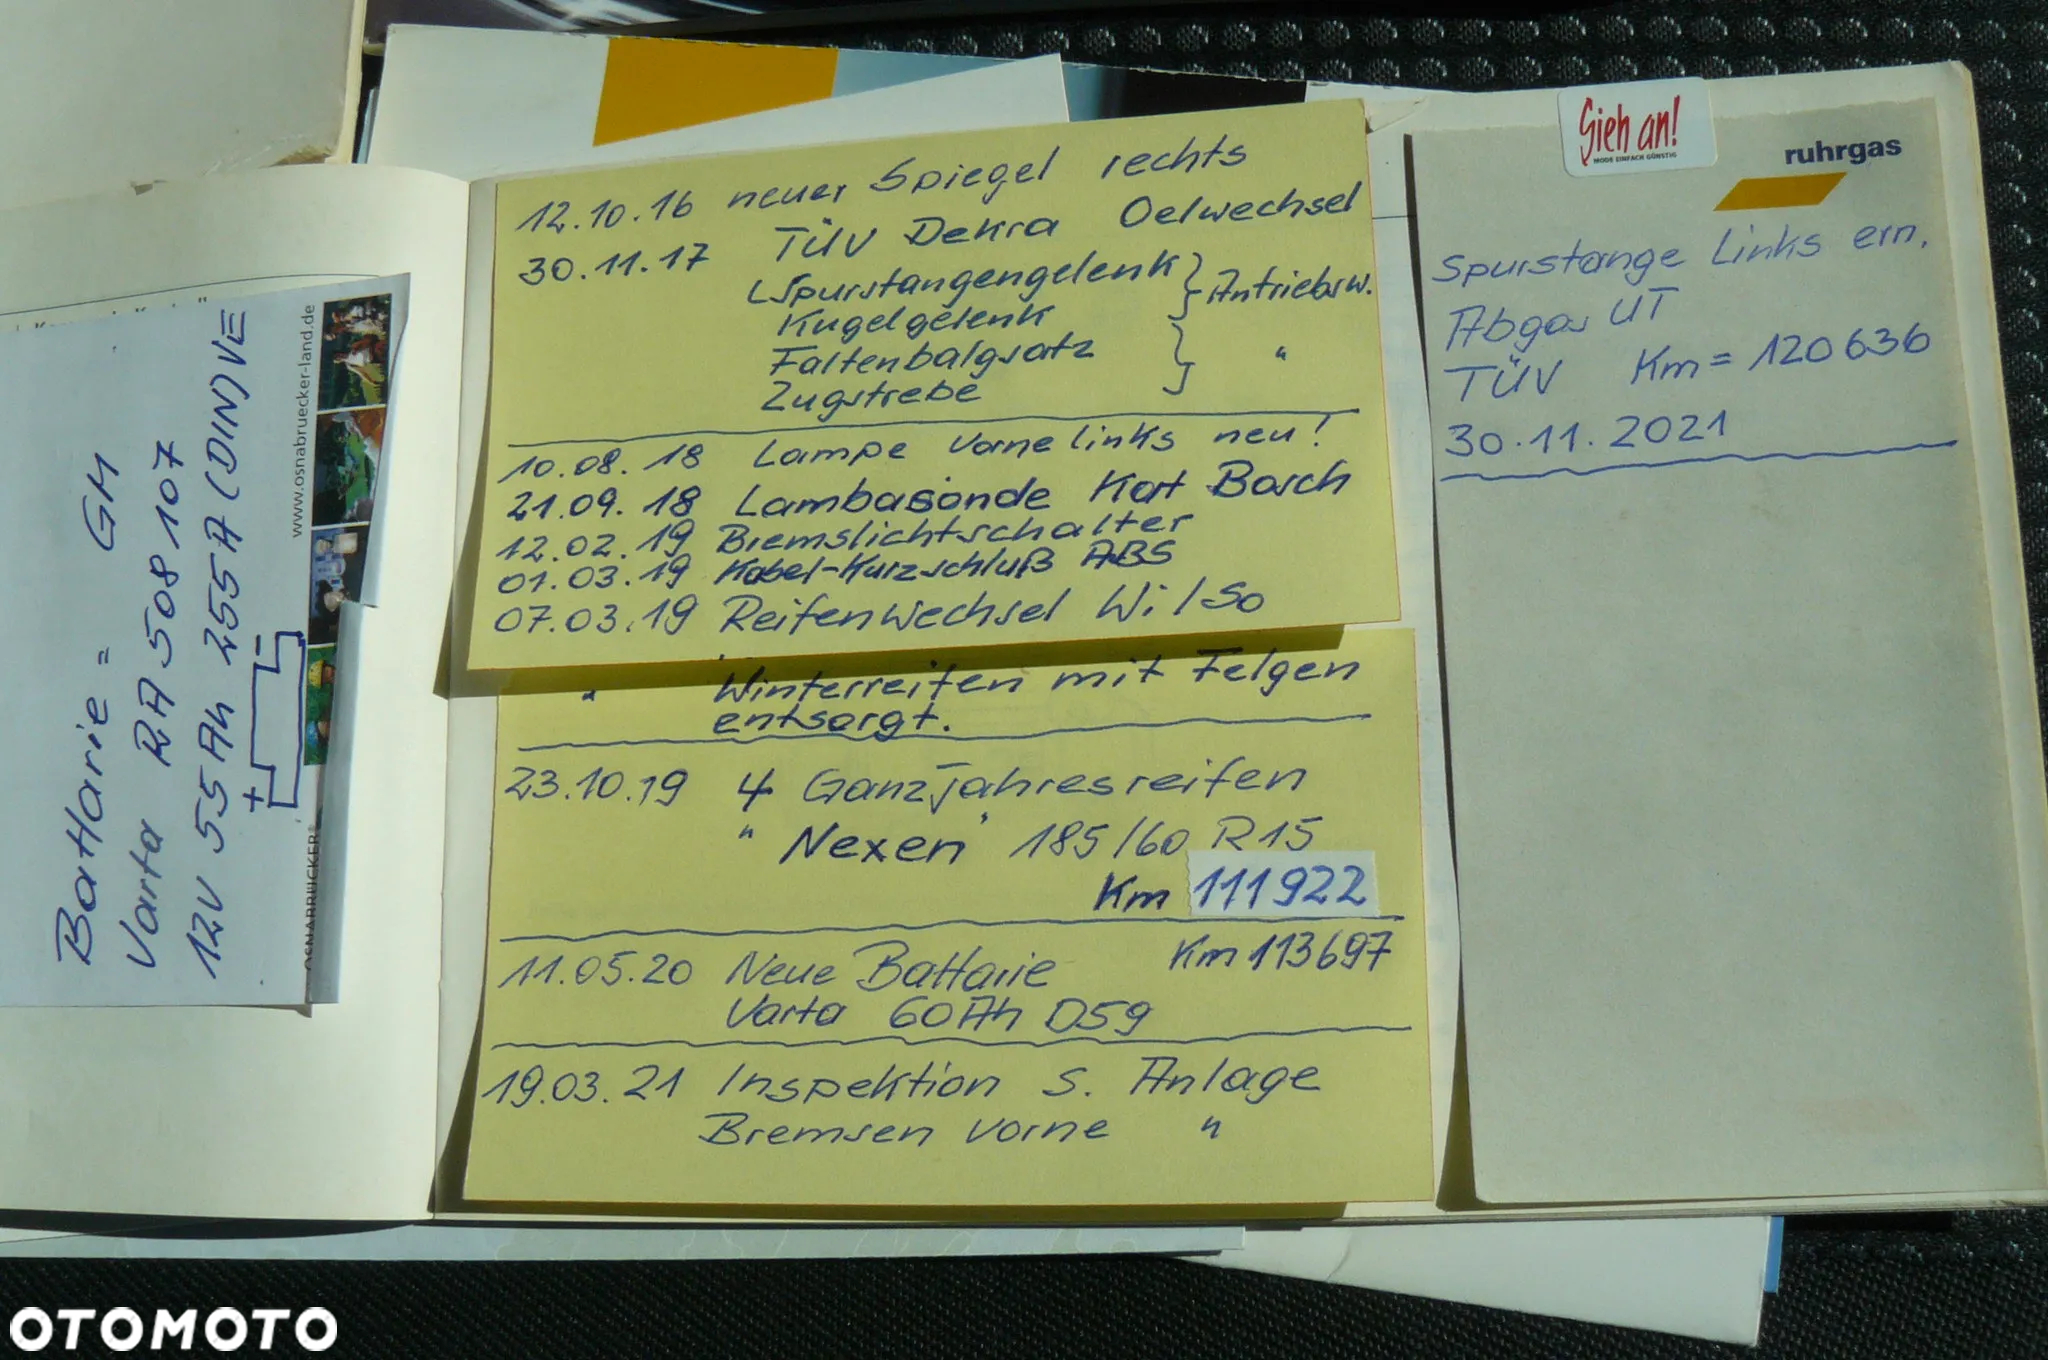 Batterie = GM
Varta RA 508 107
12V 55Ah 255A (DIN) VE
+ -
www.osnabruecker-land.de
OSNABRÜCKER
12.10.16 neuer Spiegel rechts
30.11.17 TÜV Dekra Oelwechsel
Spurstangengelenk } Antriebsw.
Kugelgelenk
Faltenbalgsatz } "
Zugstrebe
10.08.18 Lampe vorne links neu!
21.09.18 Lambasonde Kat Bosch
12.02.19 Bremslichtschalter
01.03.19 Kabel-Kurzschluß ABS
07.03.19 Reifenwechsel Wi/So
" Winterreifen mit Felgen
entsorgt.
23.10.19 4 Ganzjahresreifen
"Nexen" 185/60 R15
Km 111922
11.05.20 Neue Batterie Km 113697
Varta 60Ah D59
19.03.21 Inspektion s. Anlage
Bremsen vorne "
Sieh an!
MODE EINFACH GÜNSTIG
ruhrgas
Spurstange Links ern.
Abgas UT
TÜV Km = 120636
30.11.2021
OTOMOTO